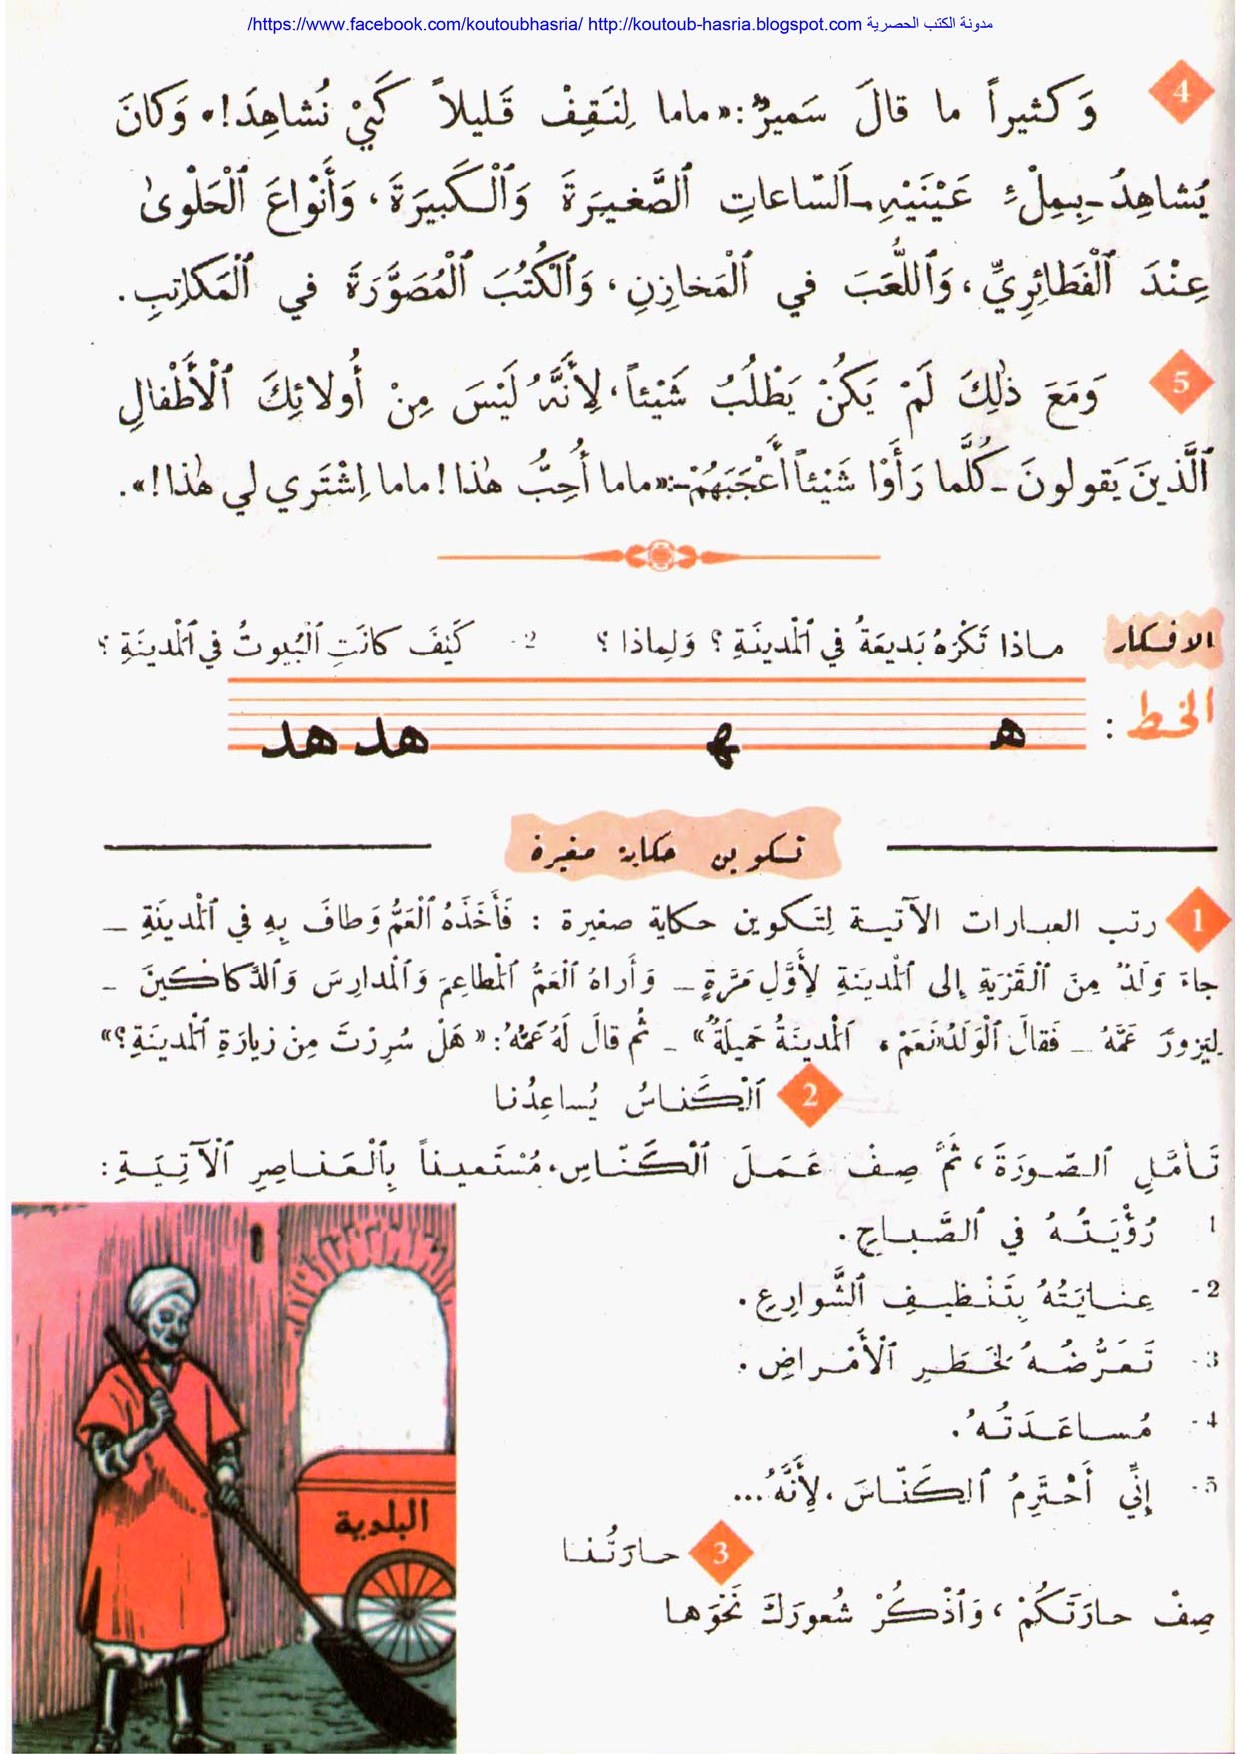 https://www.facebook.com/koutoubhasria/ http://koutoub-hasria.blogspot.com مدونة الكتب الحصرية/
4 وَكَثيراً ما قالَ سَميرٌ:«ماما لِنَقِفْ قَليلاً كَيْ نُشاهِدَ!» وَكانَ
يُشاهِدُ-بِمِلْءِ عَيْنَيْهِ-اَلسّاعاتِ ٱلصَّغيرَةَ وَٱلْكَبيرَةَ، وَأَنْواعَ ٱلْحَلْوىٰ
عِنْدَ ٱلْفَطائِرِيِّ، وَٱللُّعَبَ في ٱلْمَخازِنِ، وَٱلْكُتُبَ ٱلْمُصَوَّرَةَ في ٱلْمَكاتِبِ.
5 وَمَعَ ذٰلِكَ لَمْ يَكُنْ يَطْلُبُ شَيْئاً، لِأَنَّهُ لَيْسَ مِنْ أُولائِكَ ٱلْأَطْفالِ
ٱلَّذينَ يَقولونَ-كُلَّما رَأَوْا شَيْئاً أَعْجَبَهُمْ-:«ماما أُحِبُّ هٰذا! ماما اِشْتَري لي هٰذا!».
الافكار ماذا تَكْرَهُ بَديعَةُ في ٱلْمدينَةِ؟ وَلِماذا؟ 2- كَيْفَ كانَتِ ٱلْبُيوتُ في ٱلْمدينَةِ؟
الخط :
ه ه هد هد
تكوين حكاية صغيرة
1 رتب العبارات الآتية لِتَكوين حكاية صغيرة : فَأَخَذَهُ ٱلْعَمُّ وَطافَ بِهِ في ٱلْمدينَةِ –
جاءَ وَلَدٌ مِنَ ٱلْقَرْيَةِ إِلى ٱلْمدينَةِ لِأَوَّلِ مَرَّةٍ – وَأَراهُ ٱلْعَمُّ ٱلْمطاعِمَ وَٱلْمدارِسَ وَٱلدَّكاكينَ –
لِيَزورَ عَمَّهُ – فَقالَ ٱلْوَلَدُ«نَعَمْ، ٱلْمدينَةُ جَميلَةٌ» – ثُم قالَ لَهُ عَمُّهُ:«هَلْ سُرِرْتَ مِنْ زيارَةِ ٱلْمدينَةِ؟»
2 ٱلْكَناسُ يُساعِدُنا
تَأمَّلِ ٱلصّورَةَ، ثُمَّ صِفْ عَمَلَ ٱلْكَنّاسِ، مُسْتَعيناً بِٱلْعَناصِرِ ٱلْآتِيَةِ:
1 رُؤْيَتُهُ في ٱلصَّباحِ.
2- عِنايَتُهُ بِتَنْظيفِ ٱلشَّوارِعِ.
3- تَعَرُّضُهُ لِخَطَرِ ٱلْأَمْراضِ.
4- مُساعَدَتُهُ.
5- إِنّي أَحْتَرِمُ ٱلكَنّاسَ، لِأَنَّهُ...
البلدية
3 حارَتُنا
صِفْ حارَتَكُمْ، وَٱذْكُرْ شُعورَكَ نَحْوَها